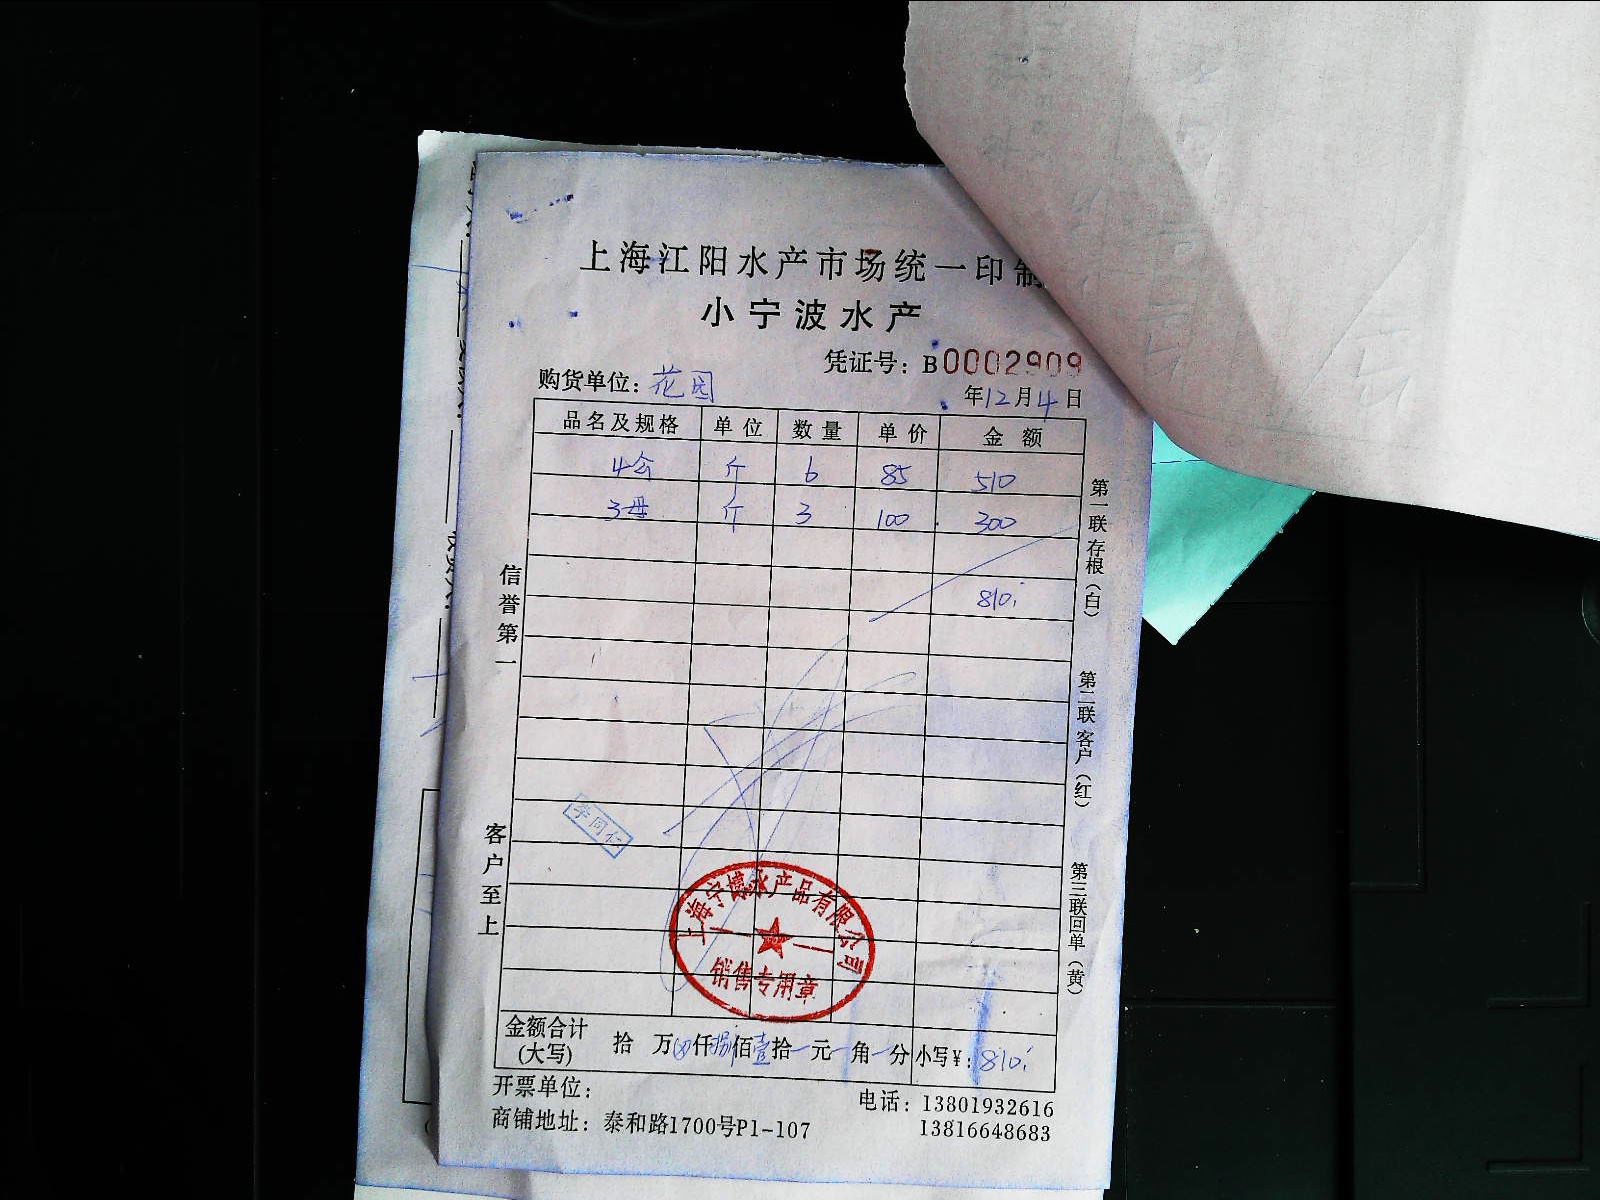 上海江阳水产市场统一印制
小宁波水产
凭证号：B0002909
购货单位：花园
年12月4日
品名及规格 单位 数量 单价 金额
4公 斤 6 85 510
3母 斤 3 100 300
810
信誉第一
客户至上
第一联存根（白）
第二联客户（红）
第三联回单（黄）
李同仁
上海宁博水产品有限公司
销售专用章
金额合计
(大写) 拾 万 仟捌佰壹拾 元 角 分 小写￥：810
开票单位：
电话：13801932616
商铺地址：泰和路1700号P1-107
13816648683